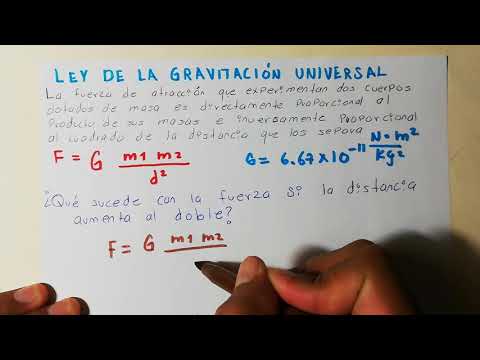 LEY DE LA GRAVITACIÓN UNIVERSAL
La fuerza de atracción que experimentan dos cuerpos
dotados de masa es directamente proporcional al
Producto de sus masas e inversamente proporcional
al cuadrado de la distancia que los separa
F = G m1 m2 / d² G = 6.67x10⁻¹¹ N·m² / Kg²
¿Qué sucede con la fuerza si la distancia
aumenta al doble?
F = G m1 m2